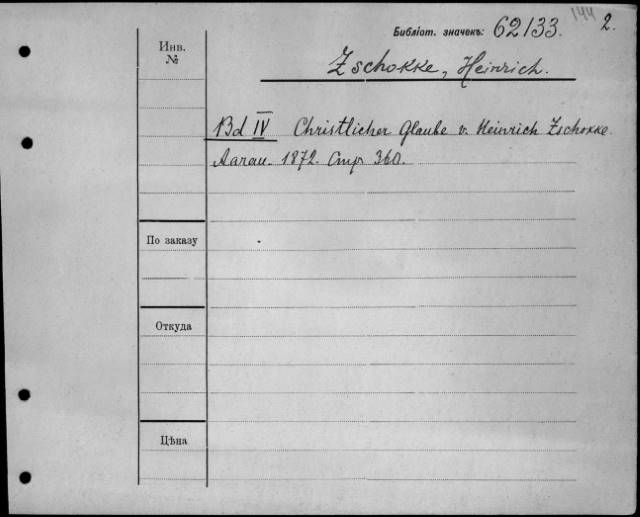 144
Библіот. значекъ: 62133. 2.
Инв.
№
Zschokke, Heinrich.
Bd IV Christlicher Glaube v. Heinrich Zschokke.
Aarau. 1872. Стр. 360.
По заказу
Откуда
Цѣна